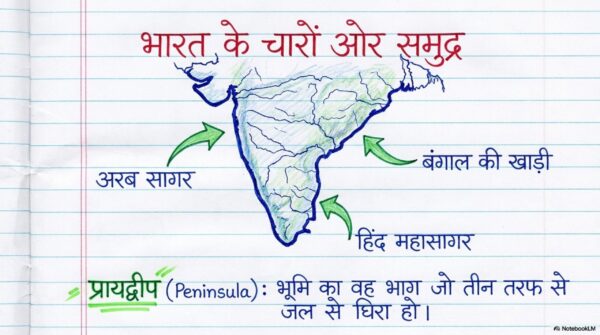 भारत के चारों ओर समुद्र
अरब सागर
बंगाल की खाड़ी
हिंद महासागर
प्रायद्वीप (Peninsula): भूमि का वह भाग जो तीन तरफ से
जल से घिरा हो।
NotebookLM